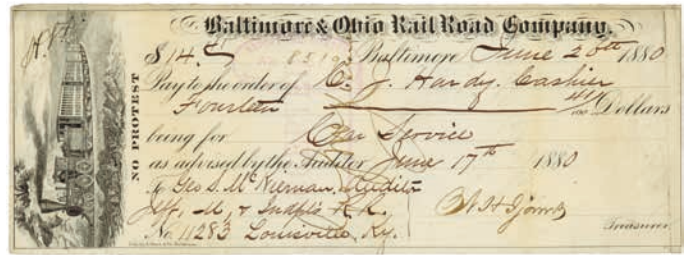 Baltimore & Ohio Rail Road Company.
$14. Baltimore June 20th 1880
Pay to the order of C. J. Hardy. Cashier
Fourteen Dollars
being for Car Service
as advised by the Auditor June 17th 1880
To Geo S. McKiernan, Auditor
Jeff, M, & Indpls R.R.
No 11283 Louisville, Ky.
Treasurer
NO PROTEST